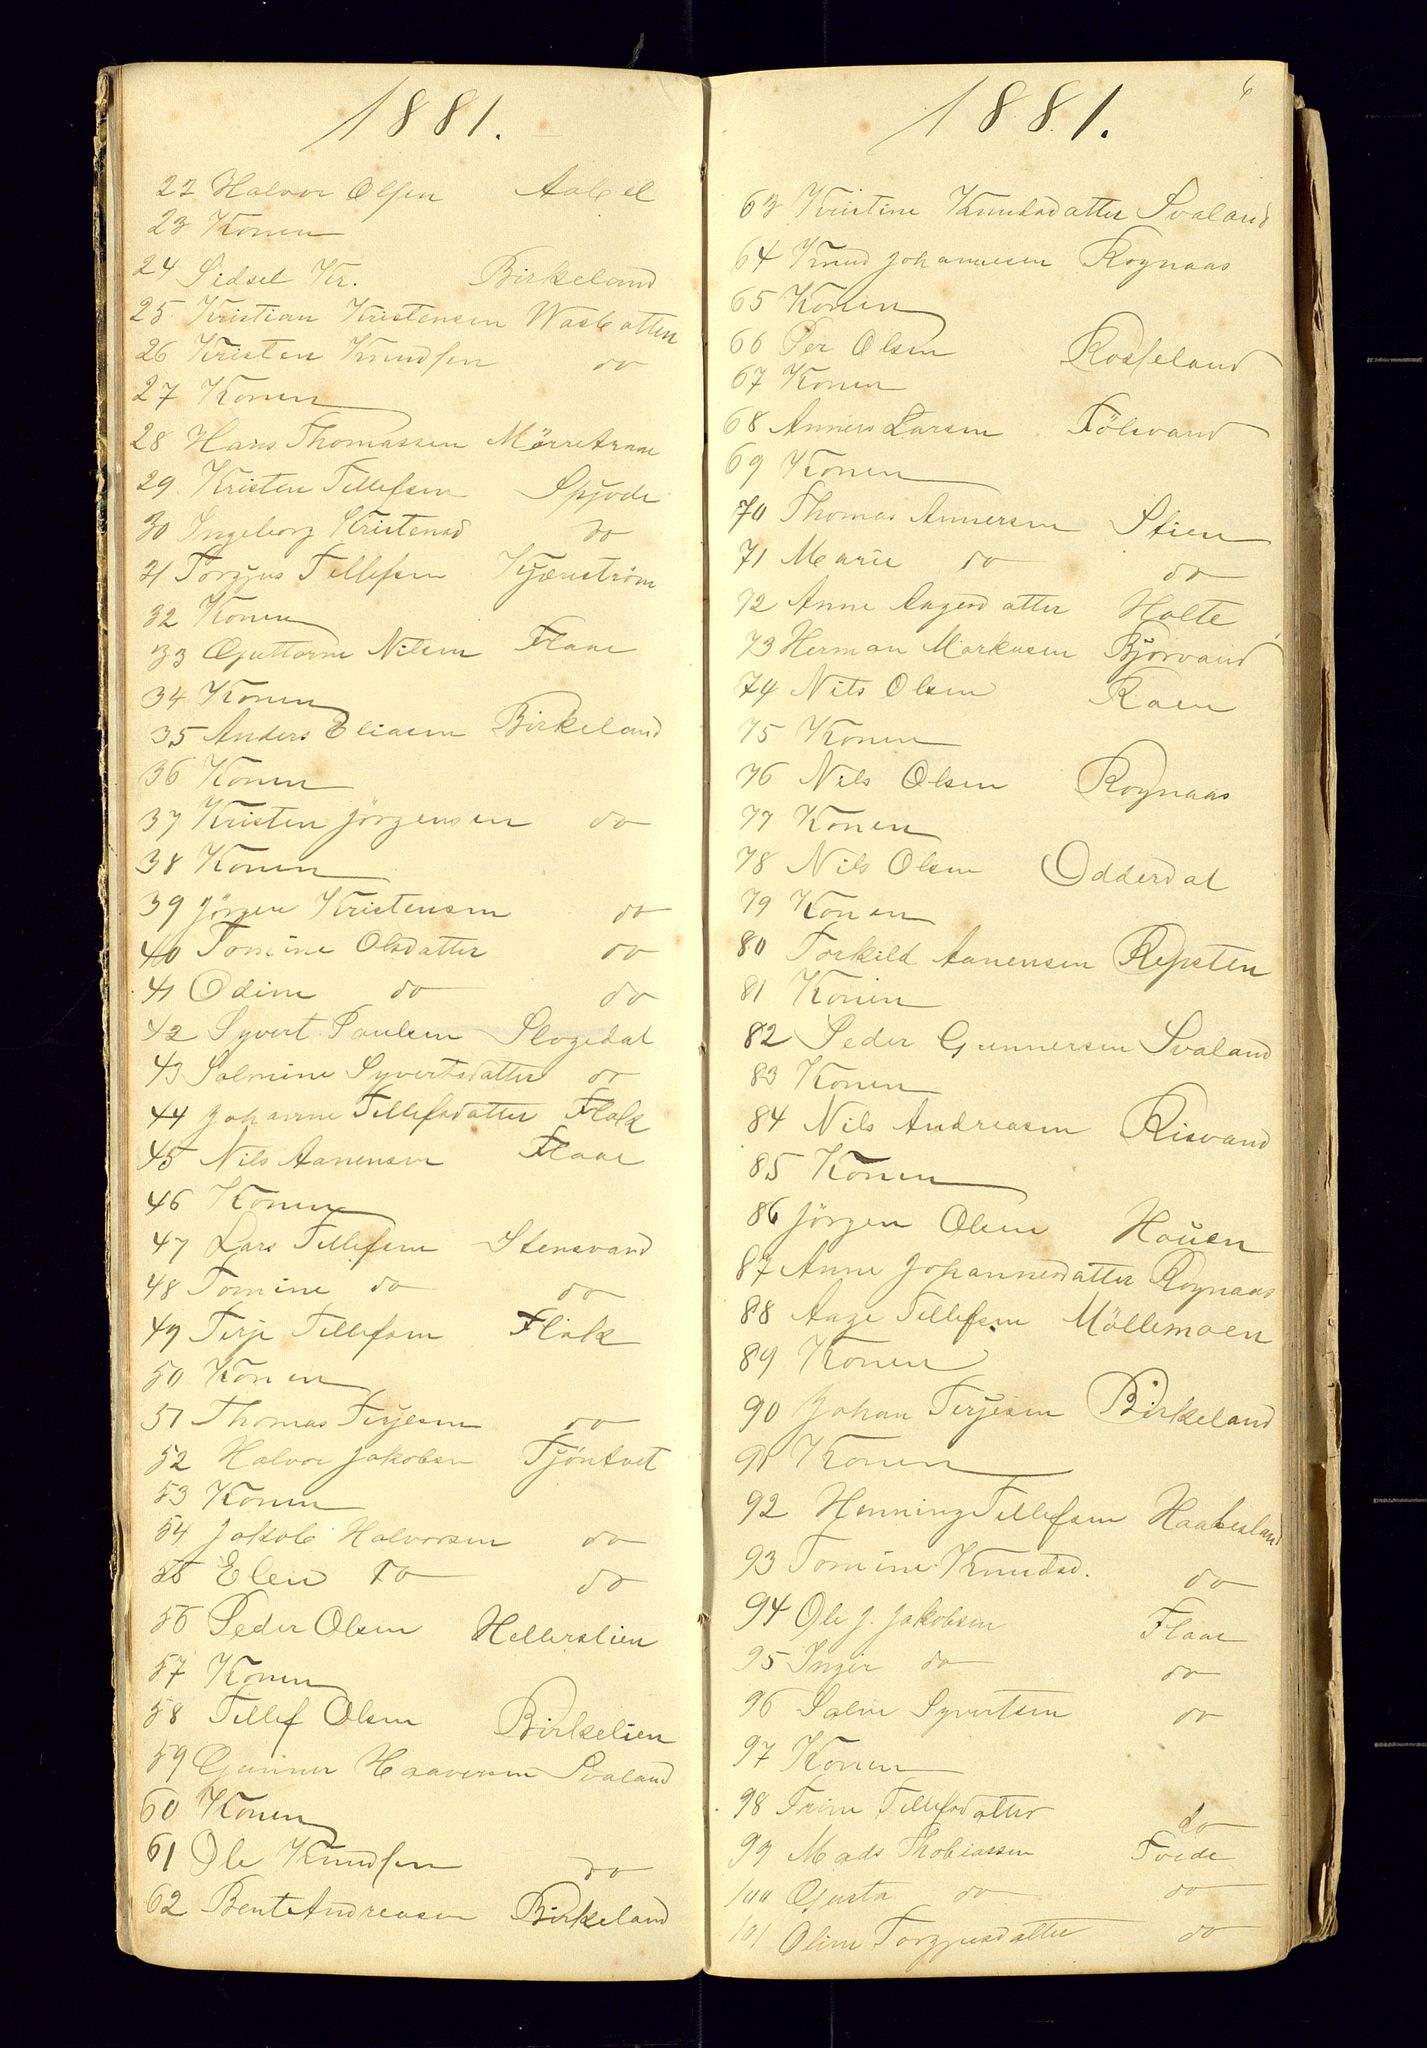 1881.
22 Halvor Olsen Aabel
23 Konen
24 Sidsel Kr. Birkeland
25 Kristian Kristensen Wasbotten
26 Kristen Knudsen do
27 Konen
28 Hans Thomassen
29 Kristen Tellefsen Spjode
30 Ingeborg Kristensd do
31 Torgjus Tellefsen Kjærestrøm
32 Konen
33 Guttorm Nilsen Flaae
34 Konen
35 Anders Eliasen Birkeland
36 Konen
37 Kristen Jörgensen do
38 Konen
39 Jörgen Kristensen do
40 Tomine Olsdatter do
41 Odine do do
42 Syvert Paulsen Slogedal
43 Salmine Syvertsdatter do
44 Johanne Tellefsdatter Flak
45 Nils Aanensen Flaae
46 Konen
47 Lars Tellefsen Stensvand
48 Tomine do do
49 Terje Tellefsen Flak
50 Konen
51 Thomas Terjesen do
52 Halvor Jakobsen Tjöntvet
53 Konen
54 Jakob Halvorsen do
55 Elen do do
56 Peder Olsen Hellerslien
57 Konen
58 Tellef Olsen Birkelien
59 Gunner Haaversen Svaland
60 Konen
61 Ole Knudsen do
62 Bent Andreasen Birkeland
6
1881.
63 Kristine Knudsdatter Svaland
64 Knud Johannesen Rognaas
65 Konen
66 Per Olsen Rosseland
67 Konen
68 Anners Larsen Fölsvand
69 Konen
70 Thomas Annersen Stien
71 Marie do do
72 Anne Aagesdatter Holte
73 Herman Markusen Bjorvand
74 Nils Olsen Roen
75 Konen
76 Nils Olsen Rognaas
77 Konen
78 Nils Olsen Odderdal
79 Konen
80 Torkild Aanensen Repsten
81 Konen
82 Peder Gunnersen Svaland
83 Konen
84 Nils Andreasen Risvand
85 Konen
86 Jörgen Olsen Hauen
87 Anne Johannesdatter Rognaas
88 Aage Tellefsen Möllemoen
89 Konen
90 Johan Terjesen Birkeland
91 Konen
92 Henning Tellefsen Haabesland
93 Tomine Knudsd. do
94 Ole J. Jakobsen Flaae
95 Inger do do
96 Salve Syvertsen do
97 Konen
98 Trine Tellefsdatter do
99 Mads Thobiassen Tvede
100 Gusta do do
101 Oline Torgjusdatter do